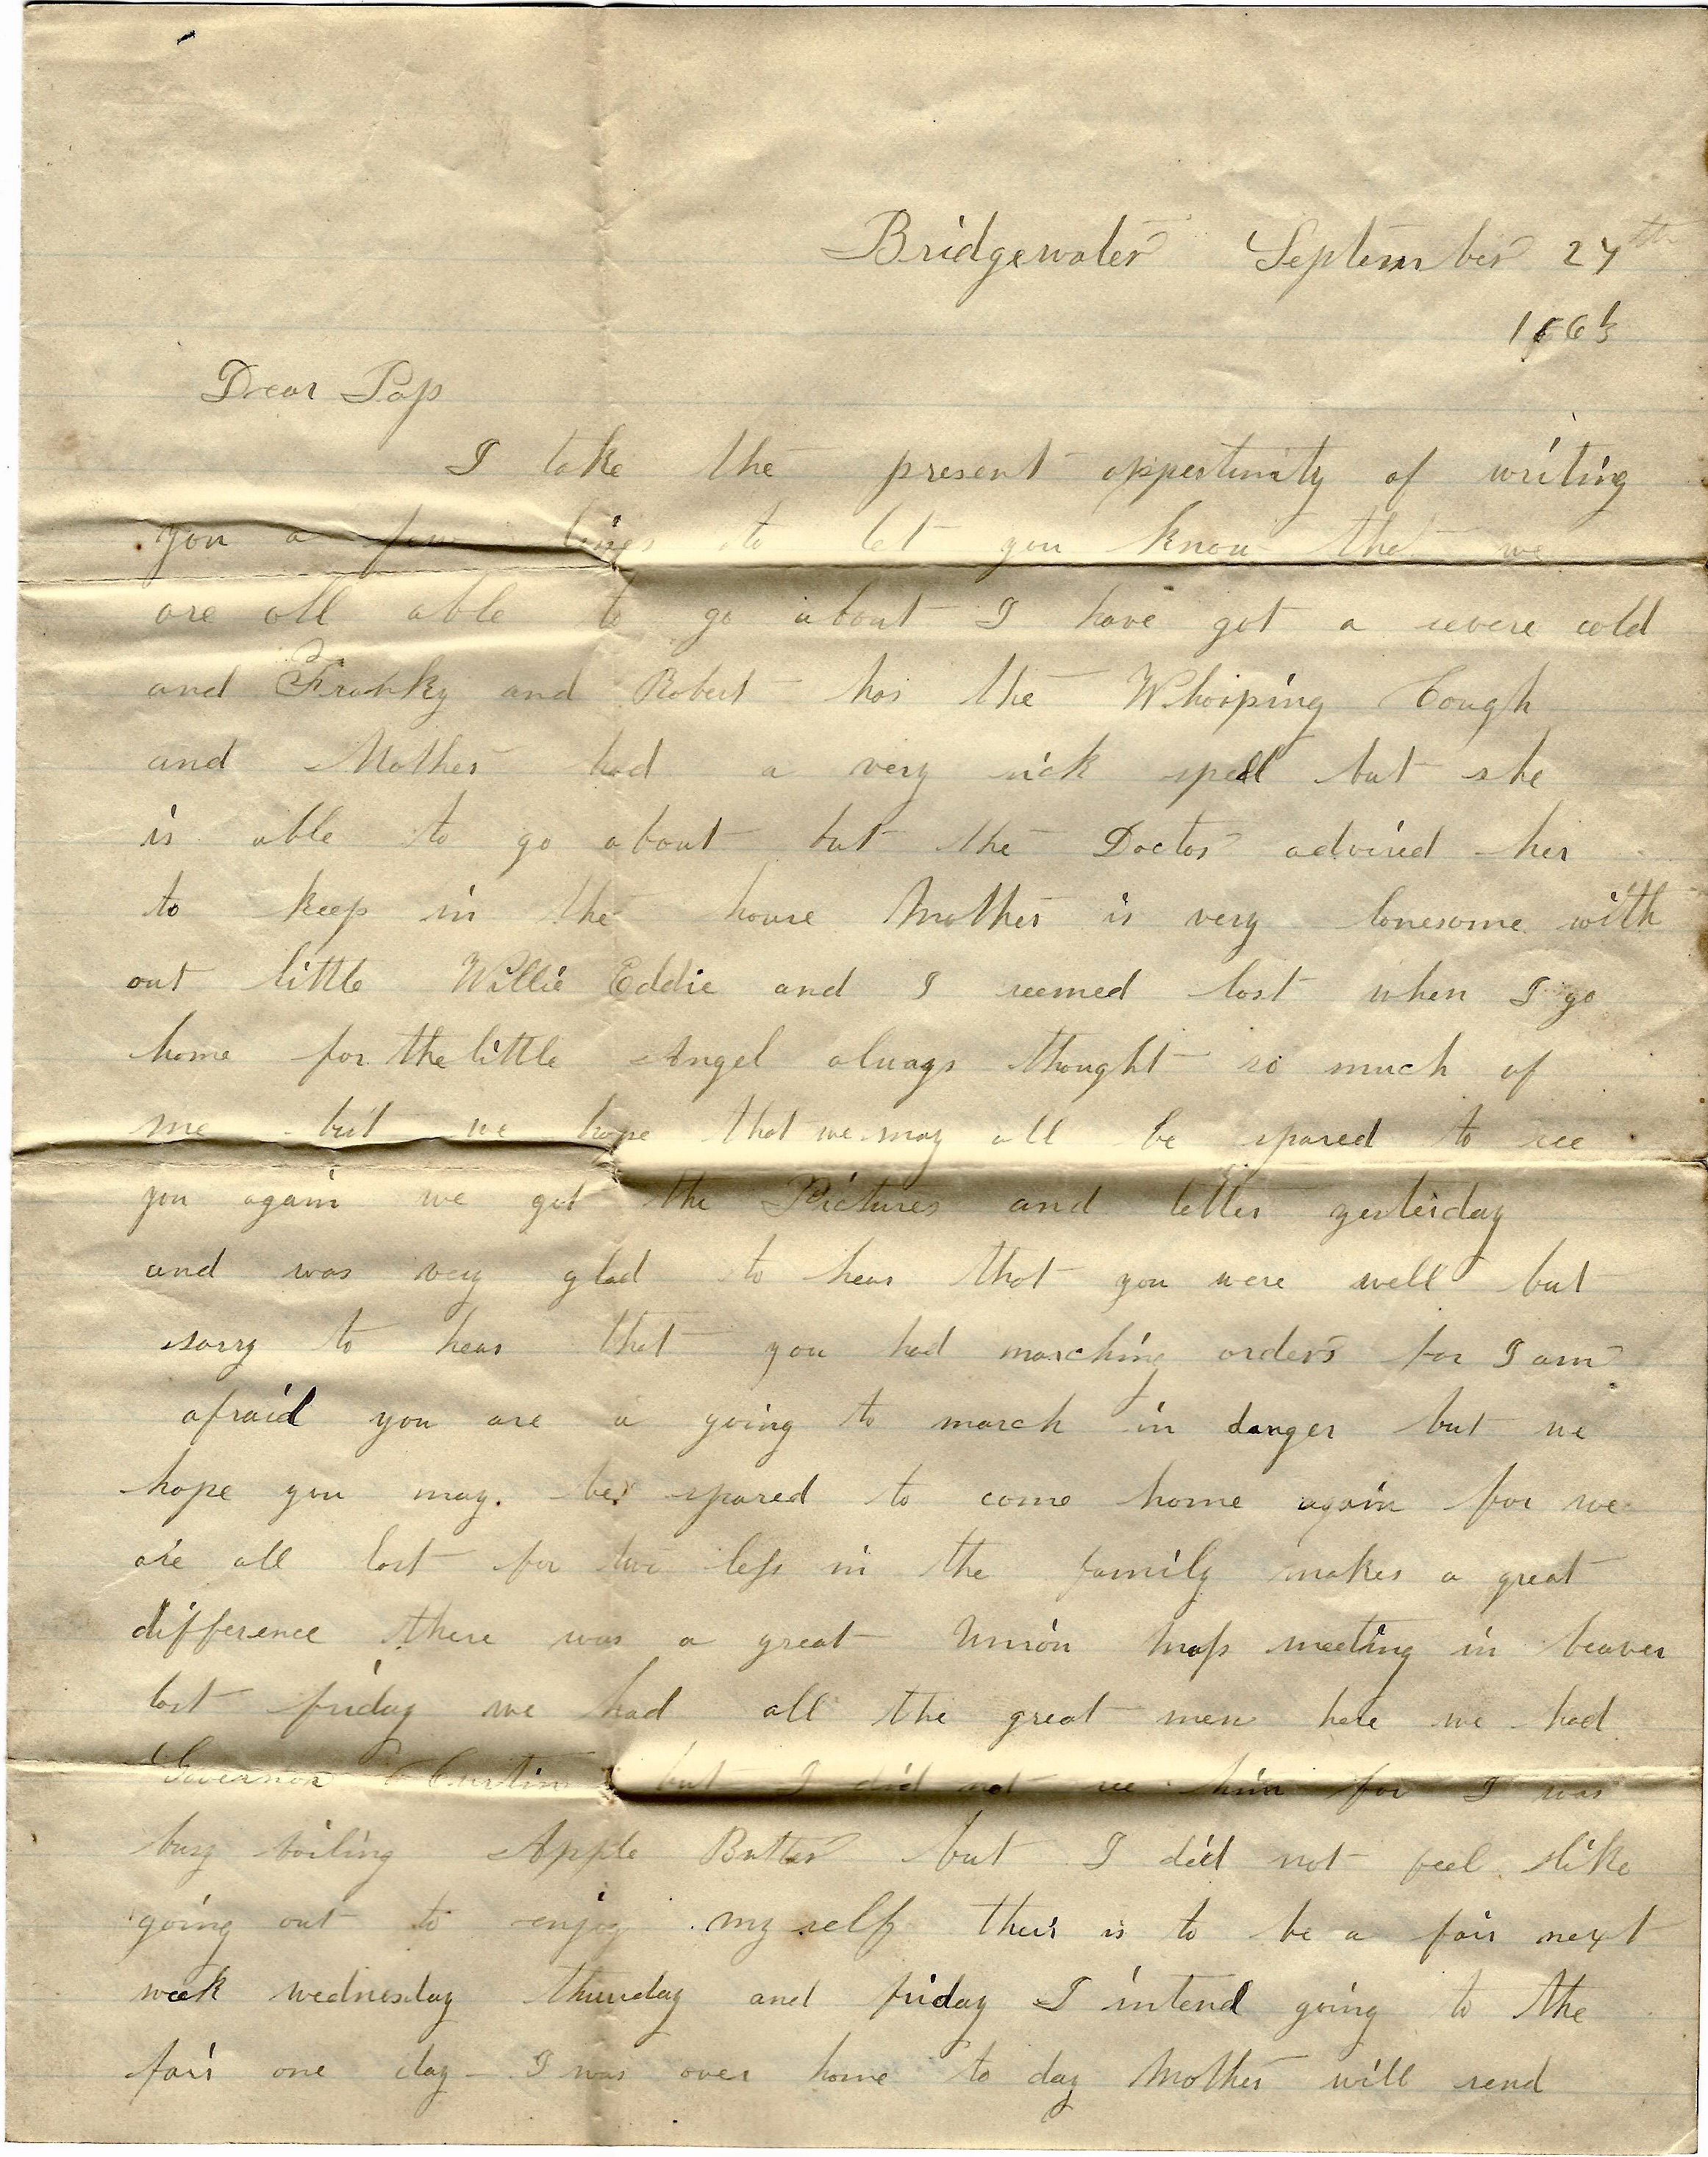 Bridgewater September 27th
1863
Dear Pap
I take the present oppertunity of writing
you a few lines to let you know that we
are all able to go about I have got a severe cold
and Franky and Robert has the Whooping Cough
and Mother had a very sick spell but she
is able to go about but the Doctor advised her
to keep in the house Mother is very lonesome with
out little Willie Eddie and I seemed lost when I go
home for the little Angel always thought so much of
me but we hope that we may all be spared to see
you again we got the Pictures and letter yesterday
and was very glad to hear that you were well but
sorry to hear that you had marching orders for I am
afraid you are a going to march in danger but we
hope you may. be spared to come home again for we
are all lost for two less in the family makes a great
difference there was a great Union Mass meeting in beaver
last friday we had all the great men here we had
Governor Curtin but I did not see him for I was
busy boiling Apple Butter but I did not feel like
going out to enjoy my self their is to be a fair next
week wednesday thursday and friday I intend going to the
fair one day I was over home to day Mother will send